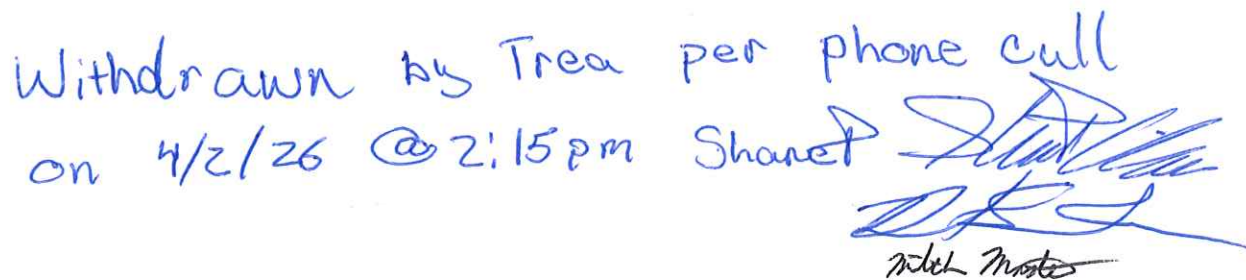 Withdrawn by Trea per phone call
on 4/2/26 @ 2:15pm Shane P